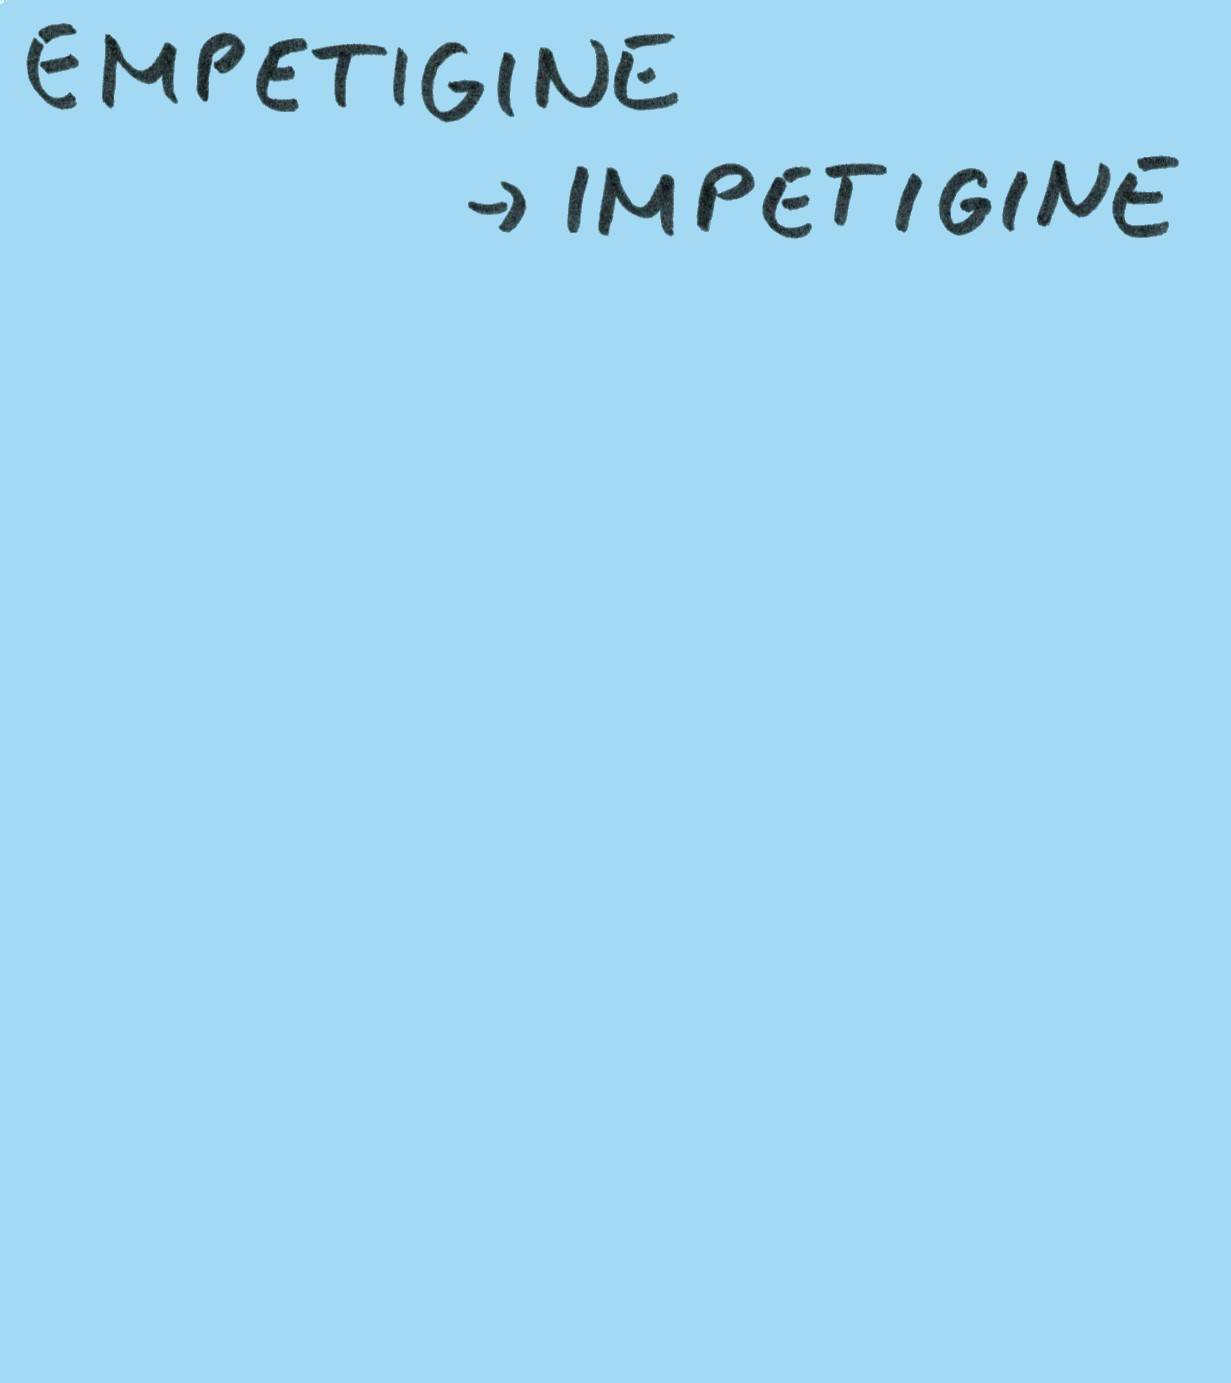 EMPETIGINE
→ IMPETIGINE